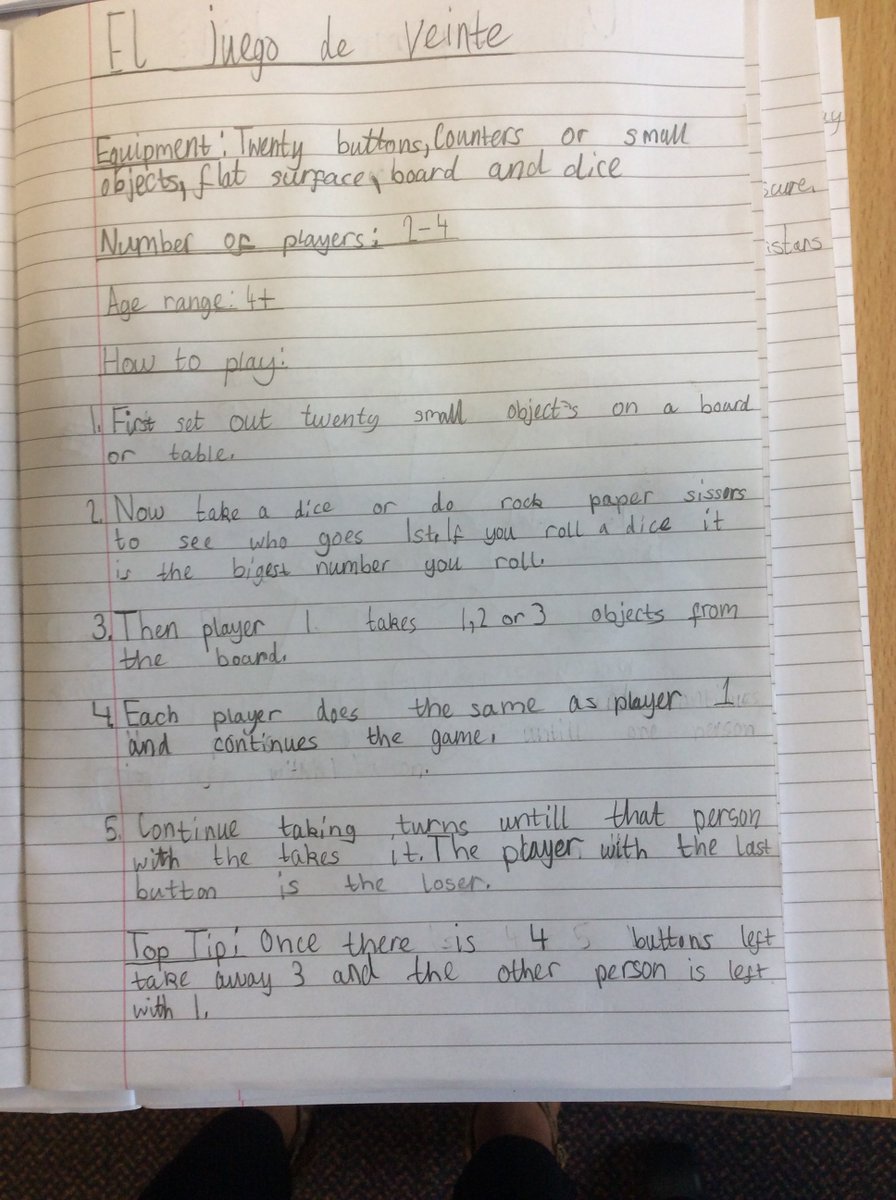 El juego de veinte
Equipment: Twenty buttons, Counters or small
objects, flat surface, board and dice
Number of players: 2-4
Age range: 4+
How to play:
1. First set out twenty small object's on a board
or table.
2. Now take a dice or do rock paper sissors
to see who goes 1st. If you roll a dice it
is the bigest number you roll.
3. Then player 1 takes 1,2 or 3 objects from
the board.
4. Each player does the same as player 1
and continues the game. untill one person
5. Continue taking turns untill that person
with the takes it. The player with the last
button is the loser.
Top Tip: Once there is 4 buttons left
take away 3 and the other person is left
with 1.
ay
sure.
istans